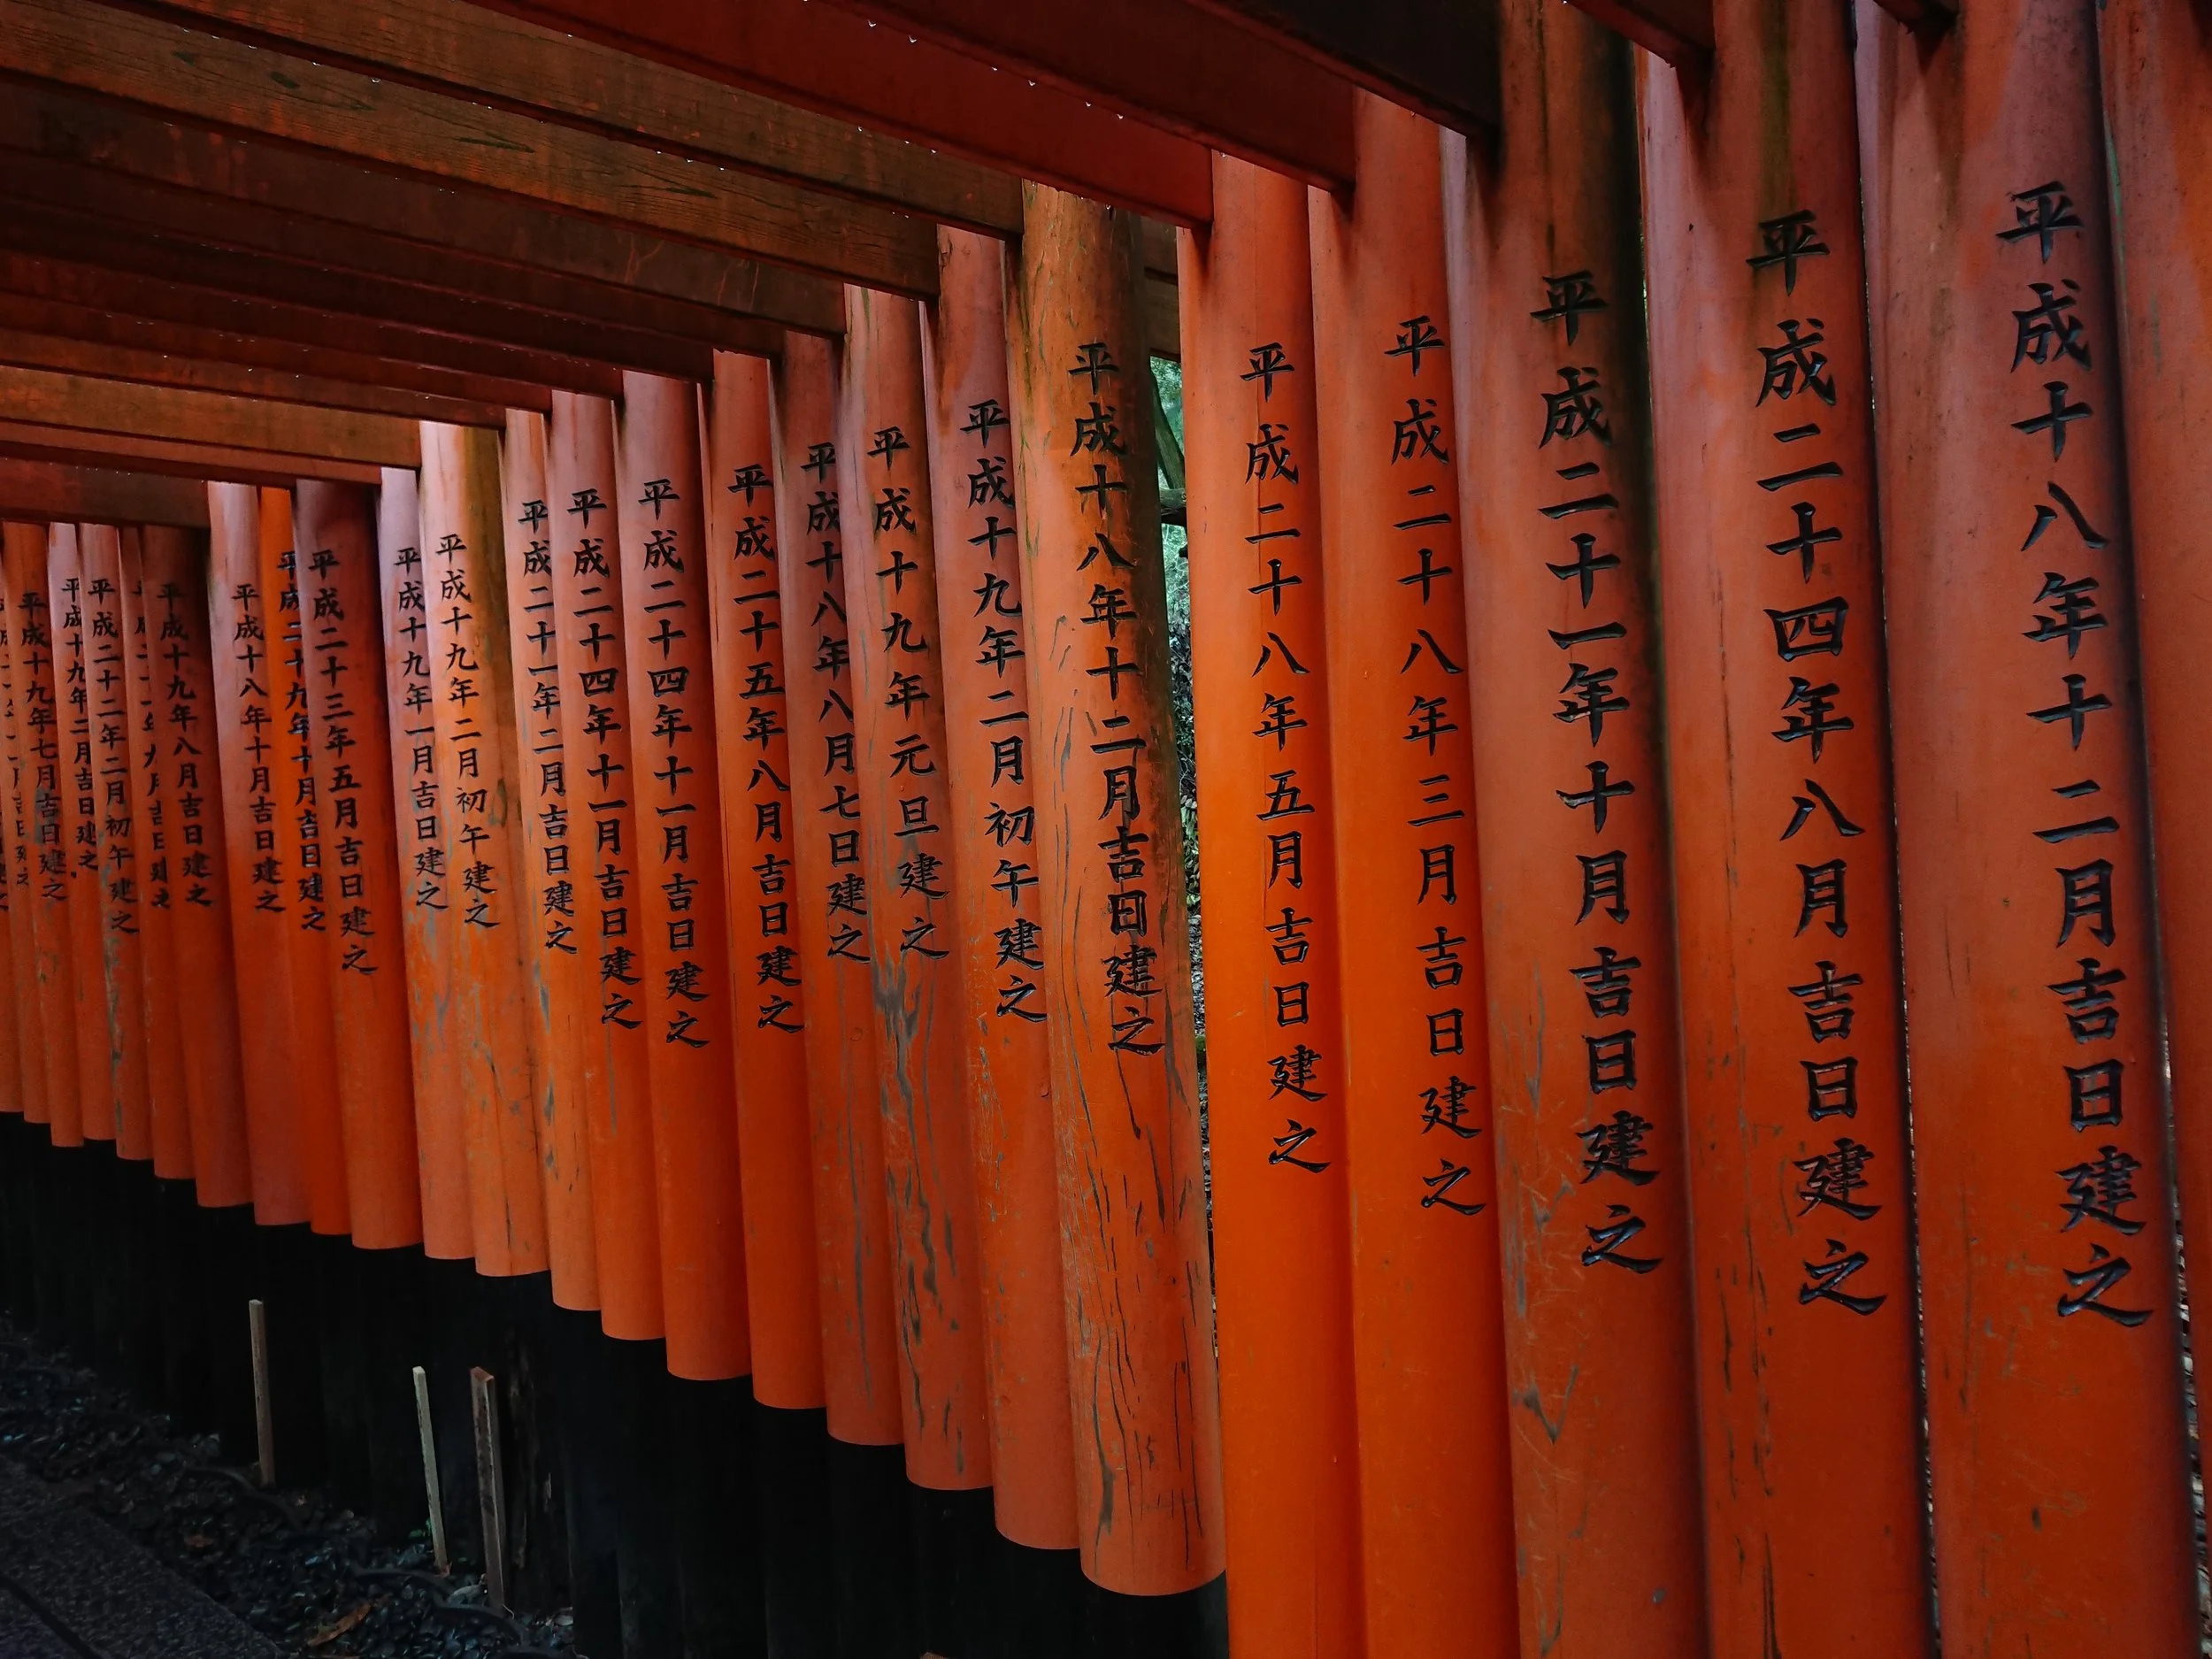 平成十八年十二月吉日建之
平成二十四年八月吉日建之
平成二十一年十月吉日建之
平成二十八年三月吉日建之
平成二十八年五月吉日建之
平成十八年十二月吉日建之
平成十九年二月初午建之
平成十九年元旦建之
平成十八年八月七日建之
平成二十五年八月吉日建之
平成二十四年十一月吉日建之
平成二十四年十一月吉日建之
平成二十一年二月吉日建之
平成十九年二月初午建之
平成十九年一月吉日建之
平成二十三年五月吉日建之
平成二十九年十月吉日建之
平成十八年十月吉日建之
平成十九年八月吉日建之
平成二十二年二月初午建之
平成十九年二月吉日建之
平成十九年七月吉日建之